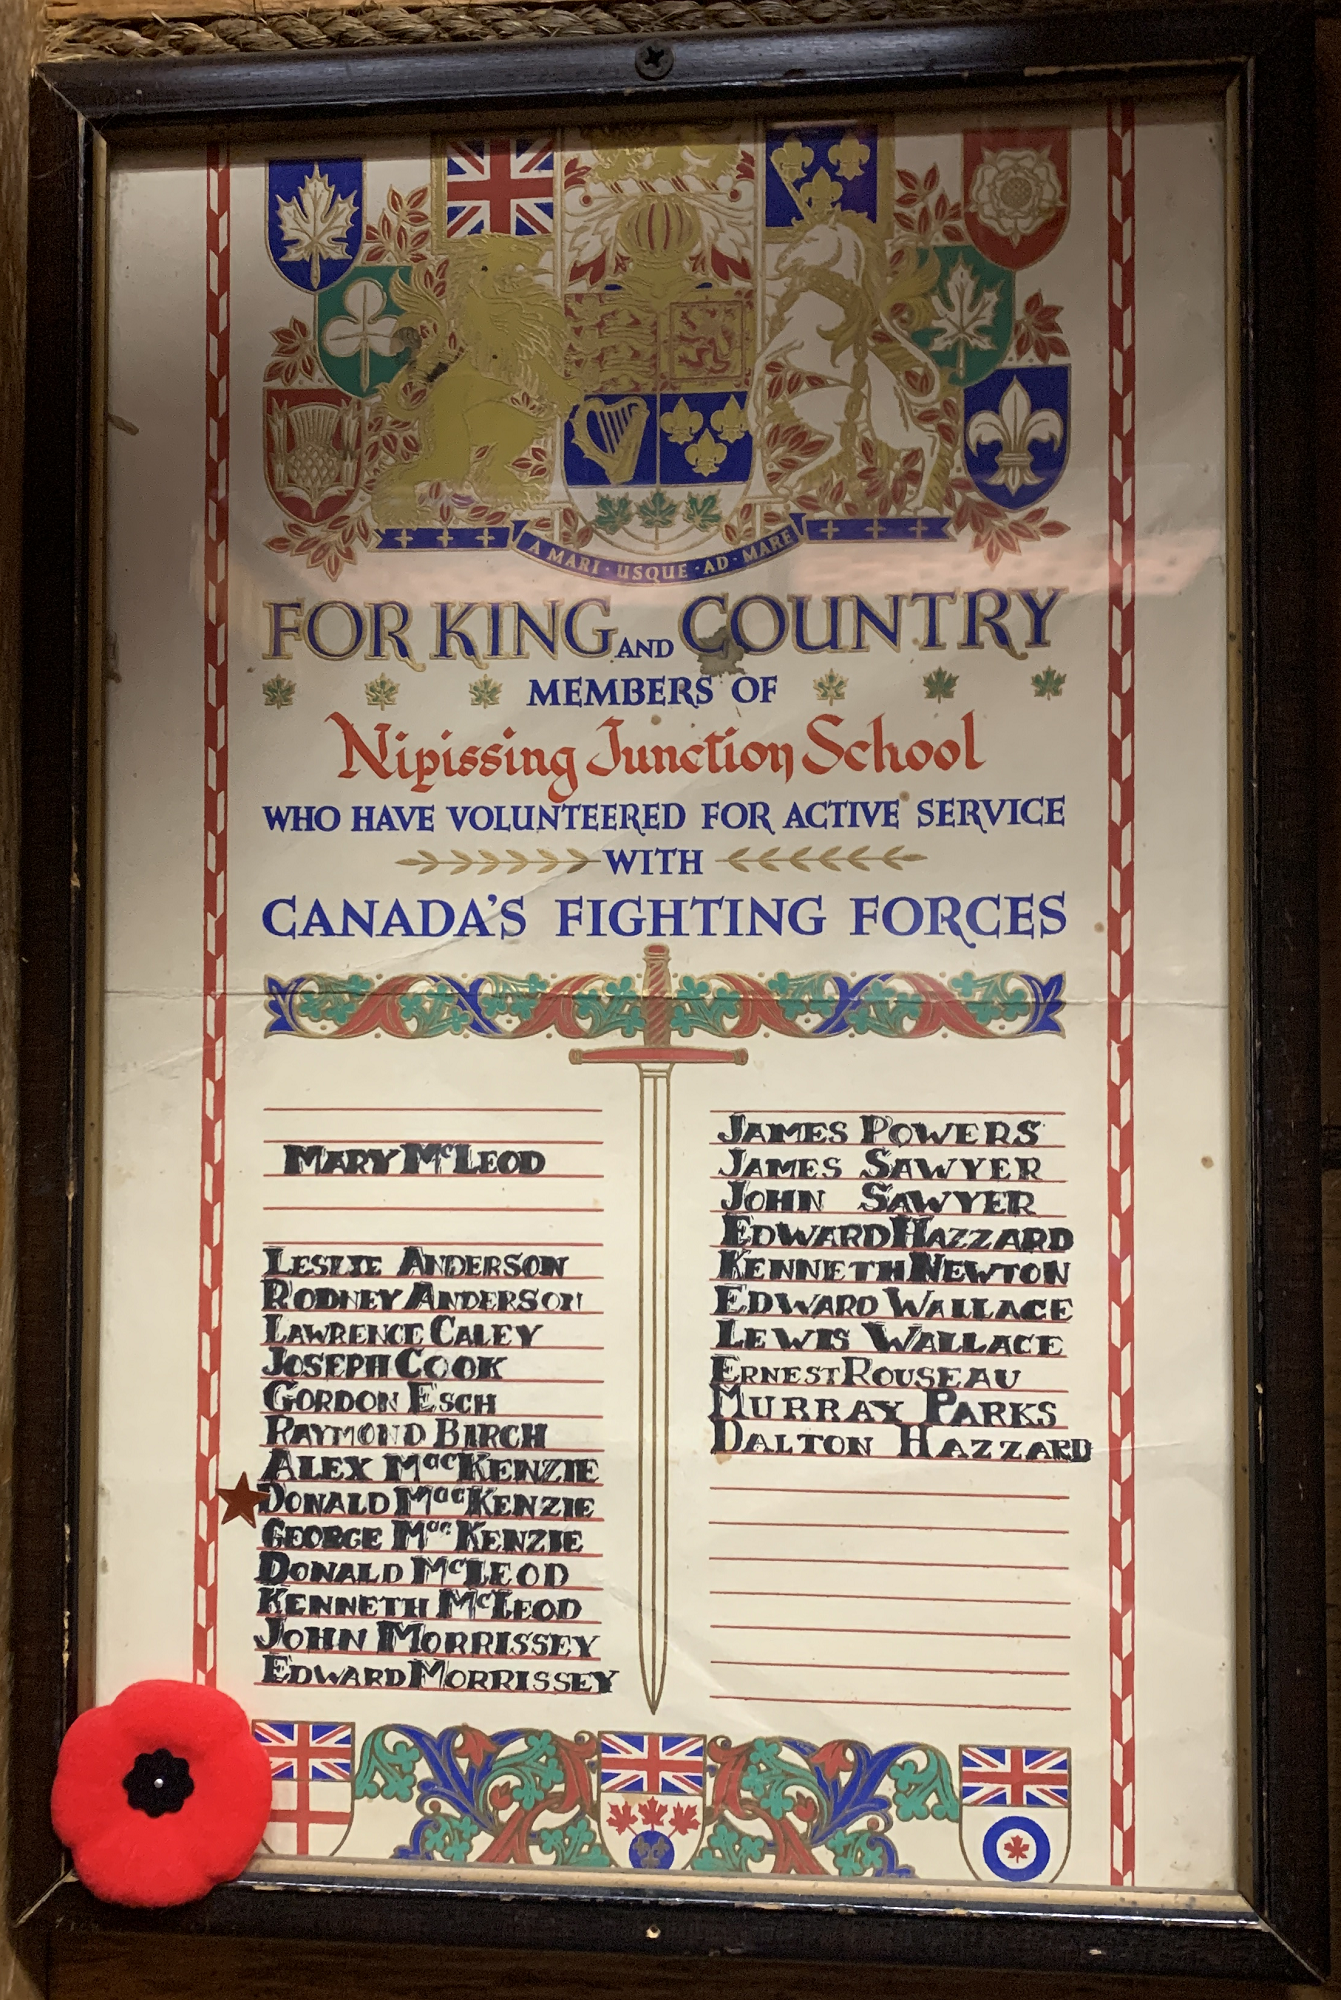 A MARI · USQUE · AD · MARE
FOR KING AND COUNTRY
MEMBERS OF
Nipissing Junction School
WHO HAVE VOLUNTEERED FOR ACTIVE SERVICE
WITH
CANADA'S FIGHTING FORCES
MARY McLEOD
LESLIE ANDERSON
RODNEY ANDERSON
LAWRENCE CALEY
JOSEPH COOK
GORDON ESCH
RAYMOND BIRCH
ALEX MacKENZIE
DONALD MacKENZIE
GEORGE MacKENZIE
DONALD McLEOD
KENNETH McLEOD
JOHN MORRISSEY
EDWARD MORRISSEY
JAMES POWERS
JAMES SAWYER
JOHN SAWYER
EDWARD HAZZARD
KENNETH NEWTON
EDWARD WALLACE
LEWIS WALLACE
ERNEST ROUSEAU
MURRAY PARKS
DALTON HAZZARD